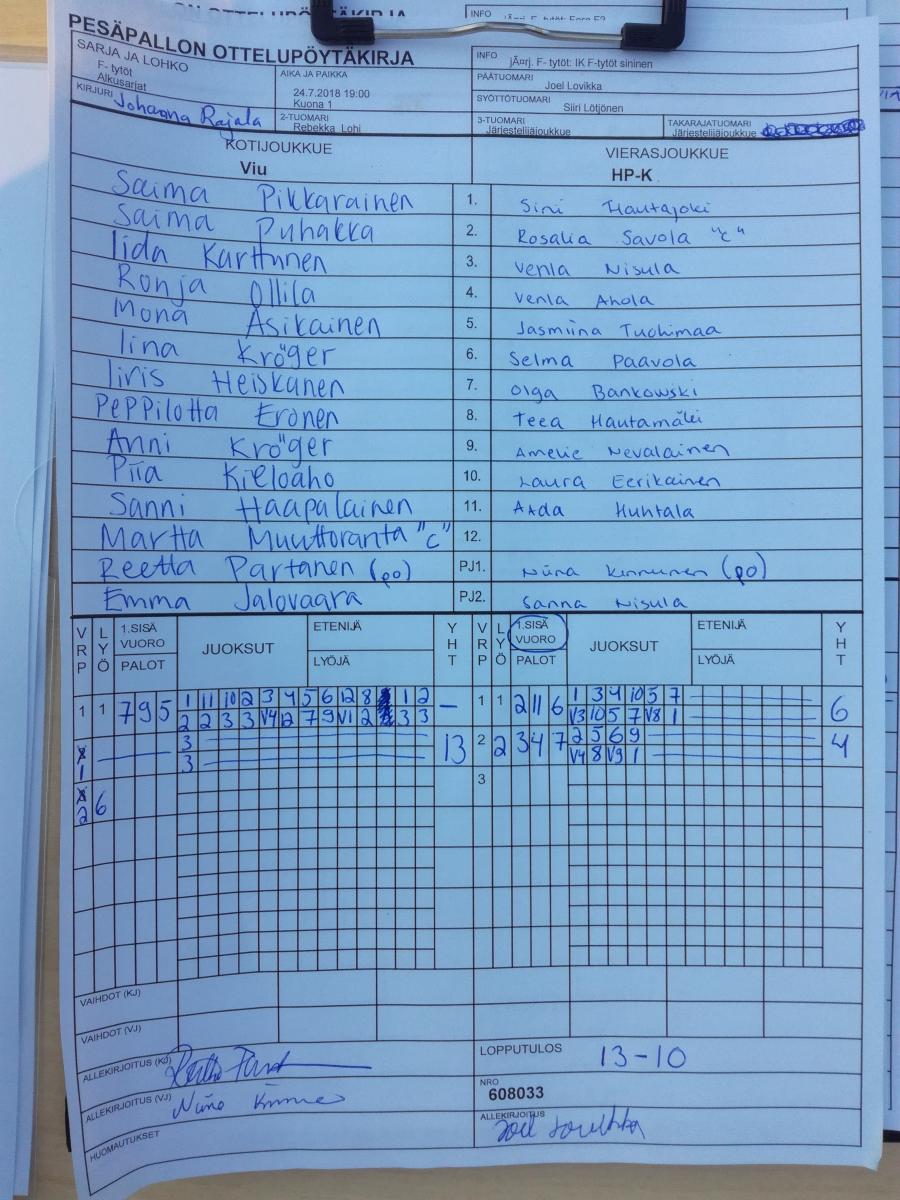 PESÄPALLON OTTELUPÖYTÄKIRJA
SARJA JA LOHKO
F- tytöt
Alkusarjat
AIKA JA PAIKKA
24.7.2018 19:00
Kuona 1
INFO
jÃ¤rj. F- tytöt: IK F-tytöt sininen
PÄÄTUOMARI
Joel Lovikka
SYÖTTÖTUOMARI
Siiri Lötjönen
KIRJURI Johanna Rajala
2-TUOMARI
Rebekka Lohi
3-TUOMARI
Järjestelijäjoukkue
TAKARAJATUOMARI
Järjestelijäjoukkue
KOTIJOUKKUE
Viu
VIERASJOUKKUE
HP-K
Saima Pikkarainen 1. Sini Hautajoki
Saima Puhakka 2. Rosalia Savola "c"
Iida Karttunen 3. Venla Nisula
Ronja Ollila 4. Venla Ahola
Mona Asikainen 5. Jasmiina Tuohimaa
Iina Kröger 6. Selma Paavola
Iiris Heiskanen 7. Olga Bankowski
Peppilotta Eronen 8. Teea Hautamäki
Anni Kröger 9. Amelie Nevalainen
Piia Kieloaho 10. Laura Eerikainen
Sanni Haapalainen 11. Aada Huhtala
Martta Muuttoranta "c" 12.
Reetta Partanen (po) PJ1. Niina Kinnunen (po)
Emma Jalovaara PJ2. Sanna Nisula
VRP LYÖ 1.SISÄ VUORO PALOT JUOKSUT ETENIJÄ LYÖJÄ YHT VRP LYÖ 1.SISÄ VUORO PALOT JUOKSUT ETENIJÄ LYÖJÄ YHT
1 1 7 9 5 1 11 10 2 3 4 5 6 12 8 1 2 — 1 1 2 11 6 1 3 4 10 5 7 6
2 2 3 3 V4 12 7 9 V1 2 3 3 V3 10 5 7 V8 1
1 3 13 2 2 3 4 7 2 5 6 9 4
3 V4 8 V9 1
2 6 3
VAIHDOT (KJ)
VAIHDOT (VJ)
ALLEKIRJOITUS (KJ)
LOPPUTULOS 13-10
ALLEKIRJOITUS (VJ)
NRO
608033
HUOMAUTUKSET
ALLEKIRJOITUS